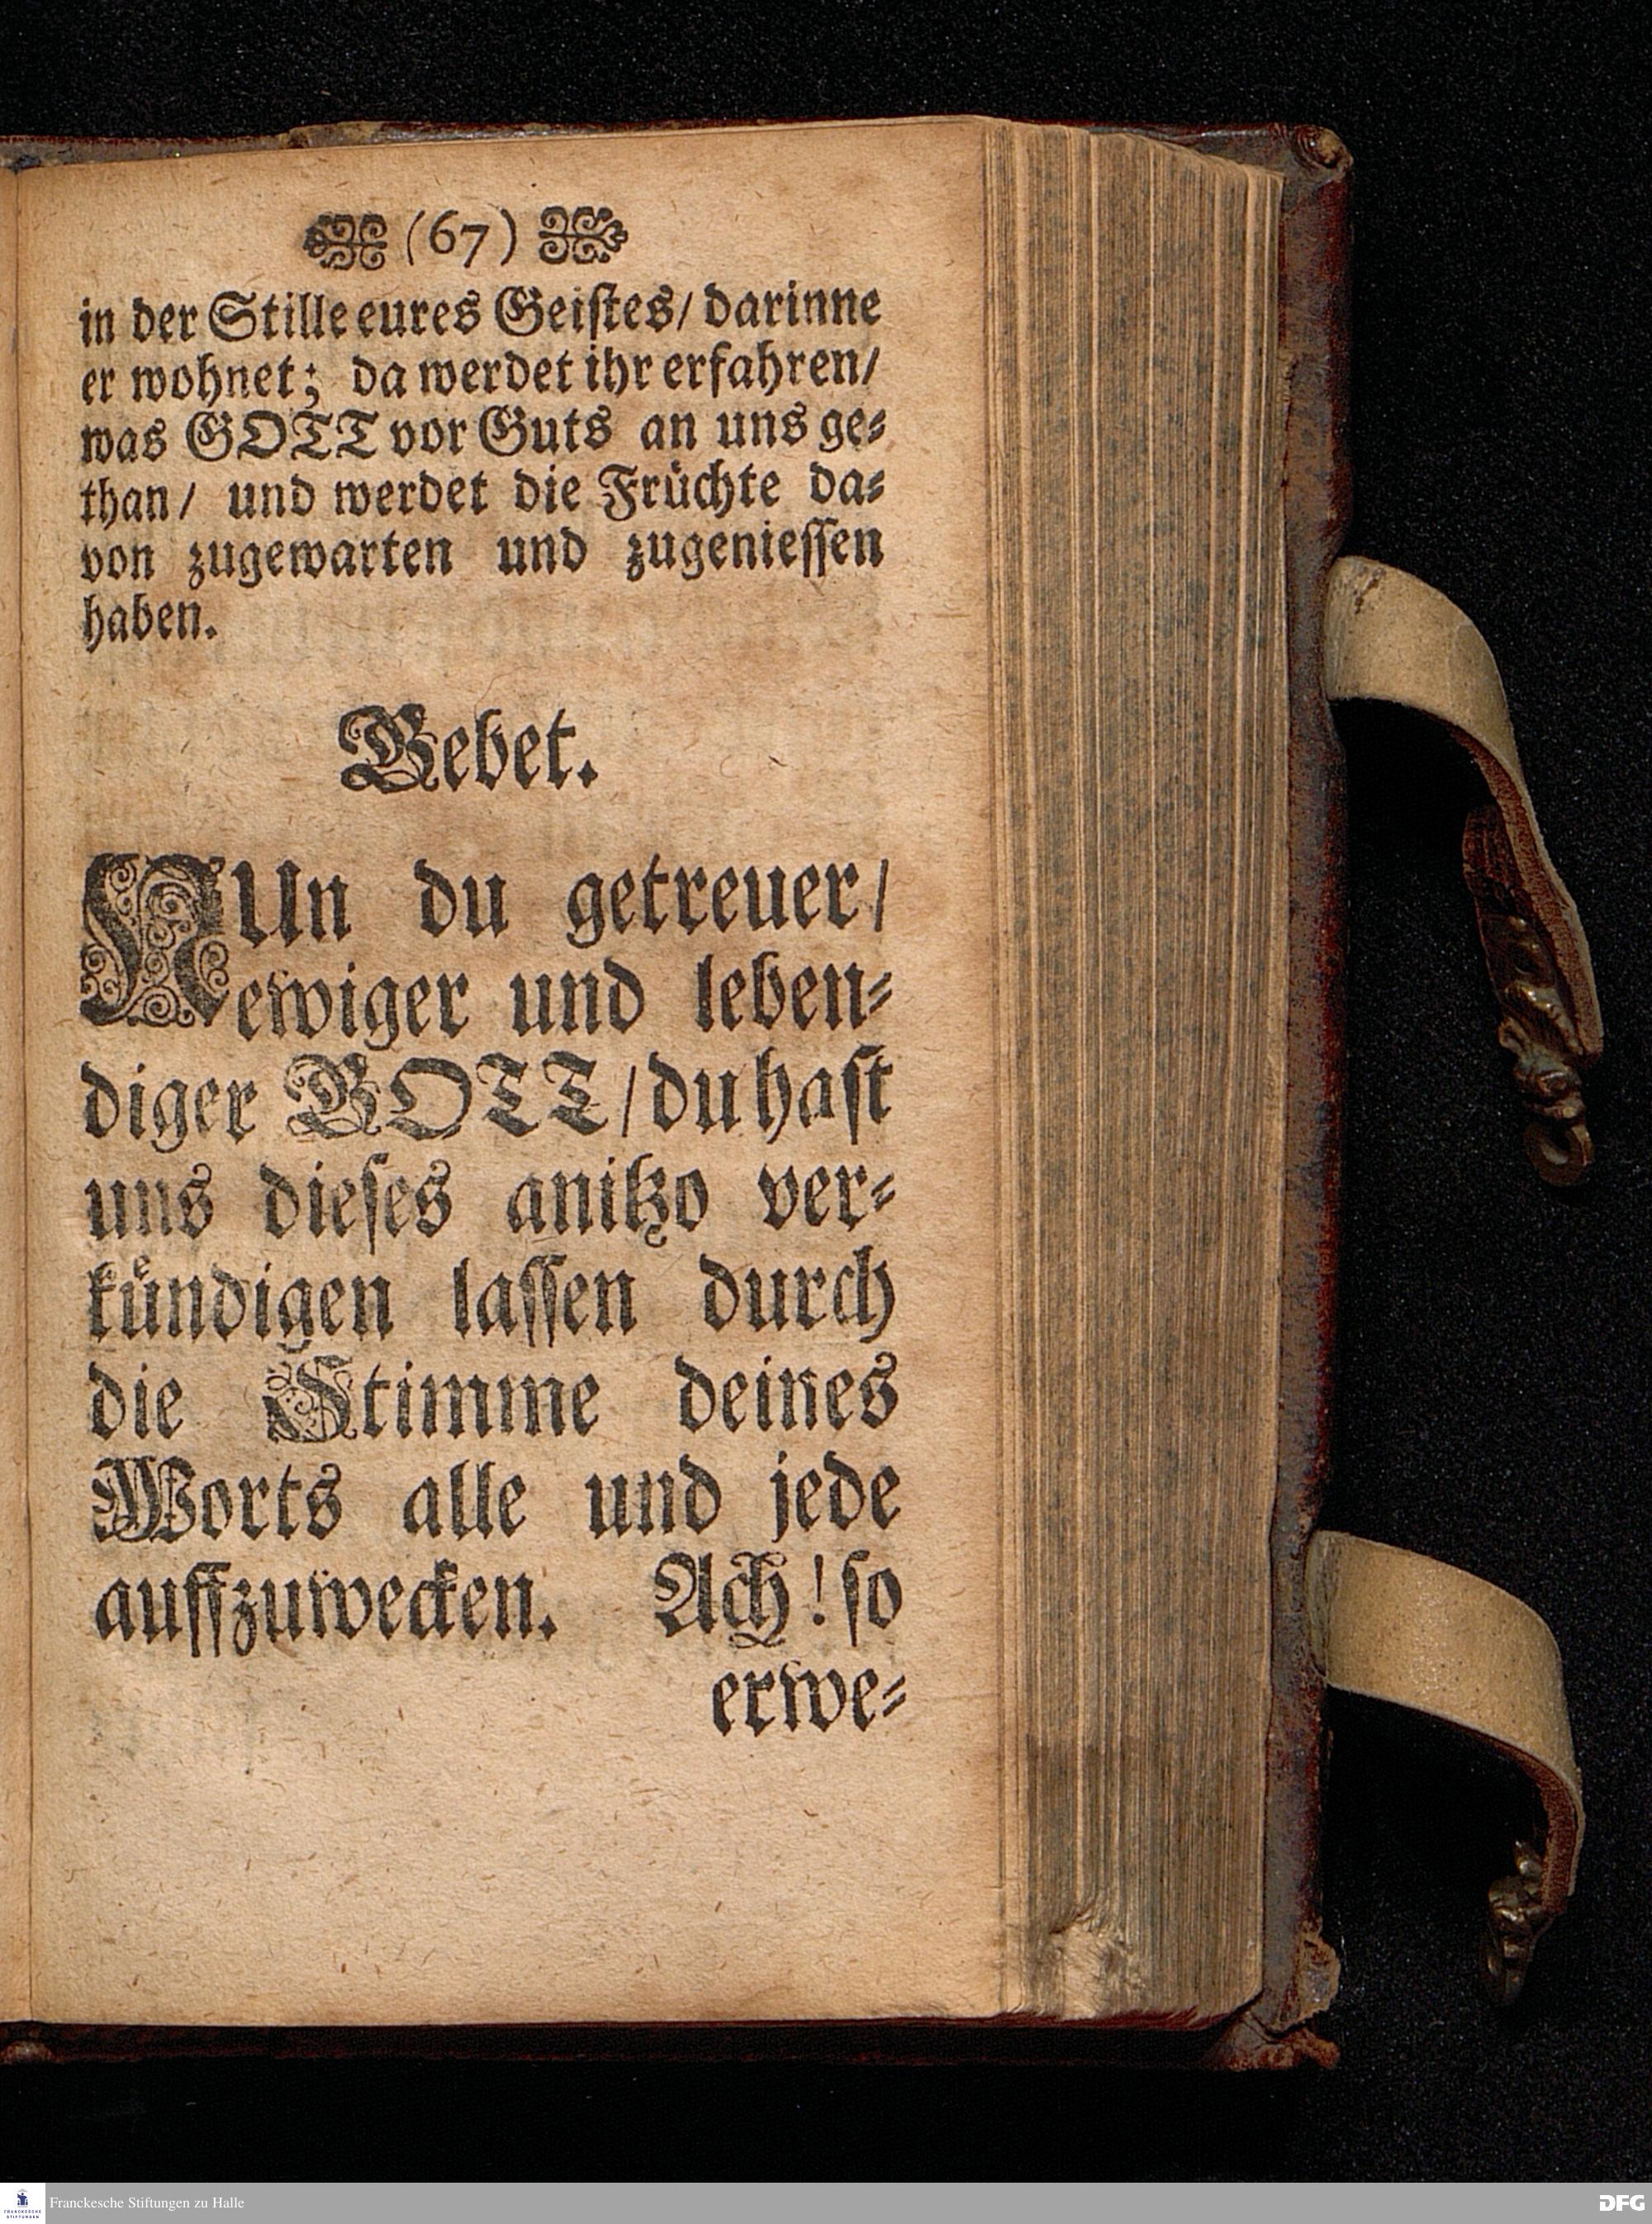 (67)
in der Stille eures Geistes/ darinne
er wohnet; da werdet ihr erfahren/
was GOTT vor Guts an uns ge-
than/ und werdet die Früchte da-
von zugewarten und zugeniessen
haben.
Gebet.
NUn du getreuer/
ewiger und leben-
diger GOTT/ du hast
uns dieses anitzo ver-
kündigen lassen durch
die Stimme deines
Worts alle und jede
auffzuwecken. Ach! so
erwe-
Franckesche Stiftungen zu Halle
FRANCKESCHE STIFTUNGEN
DFG